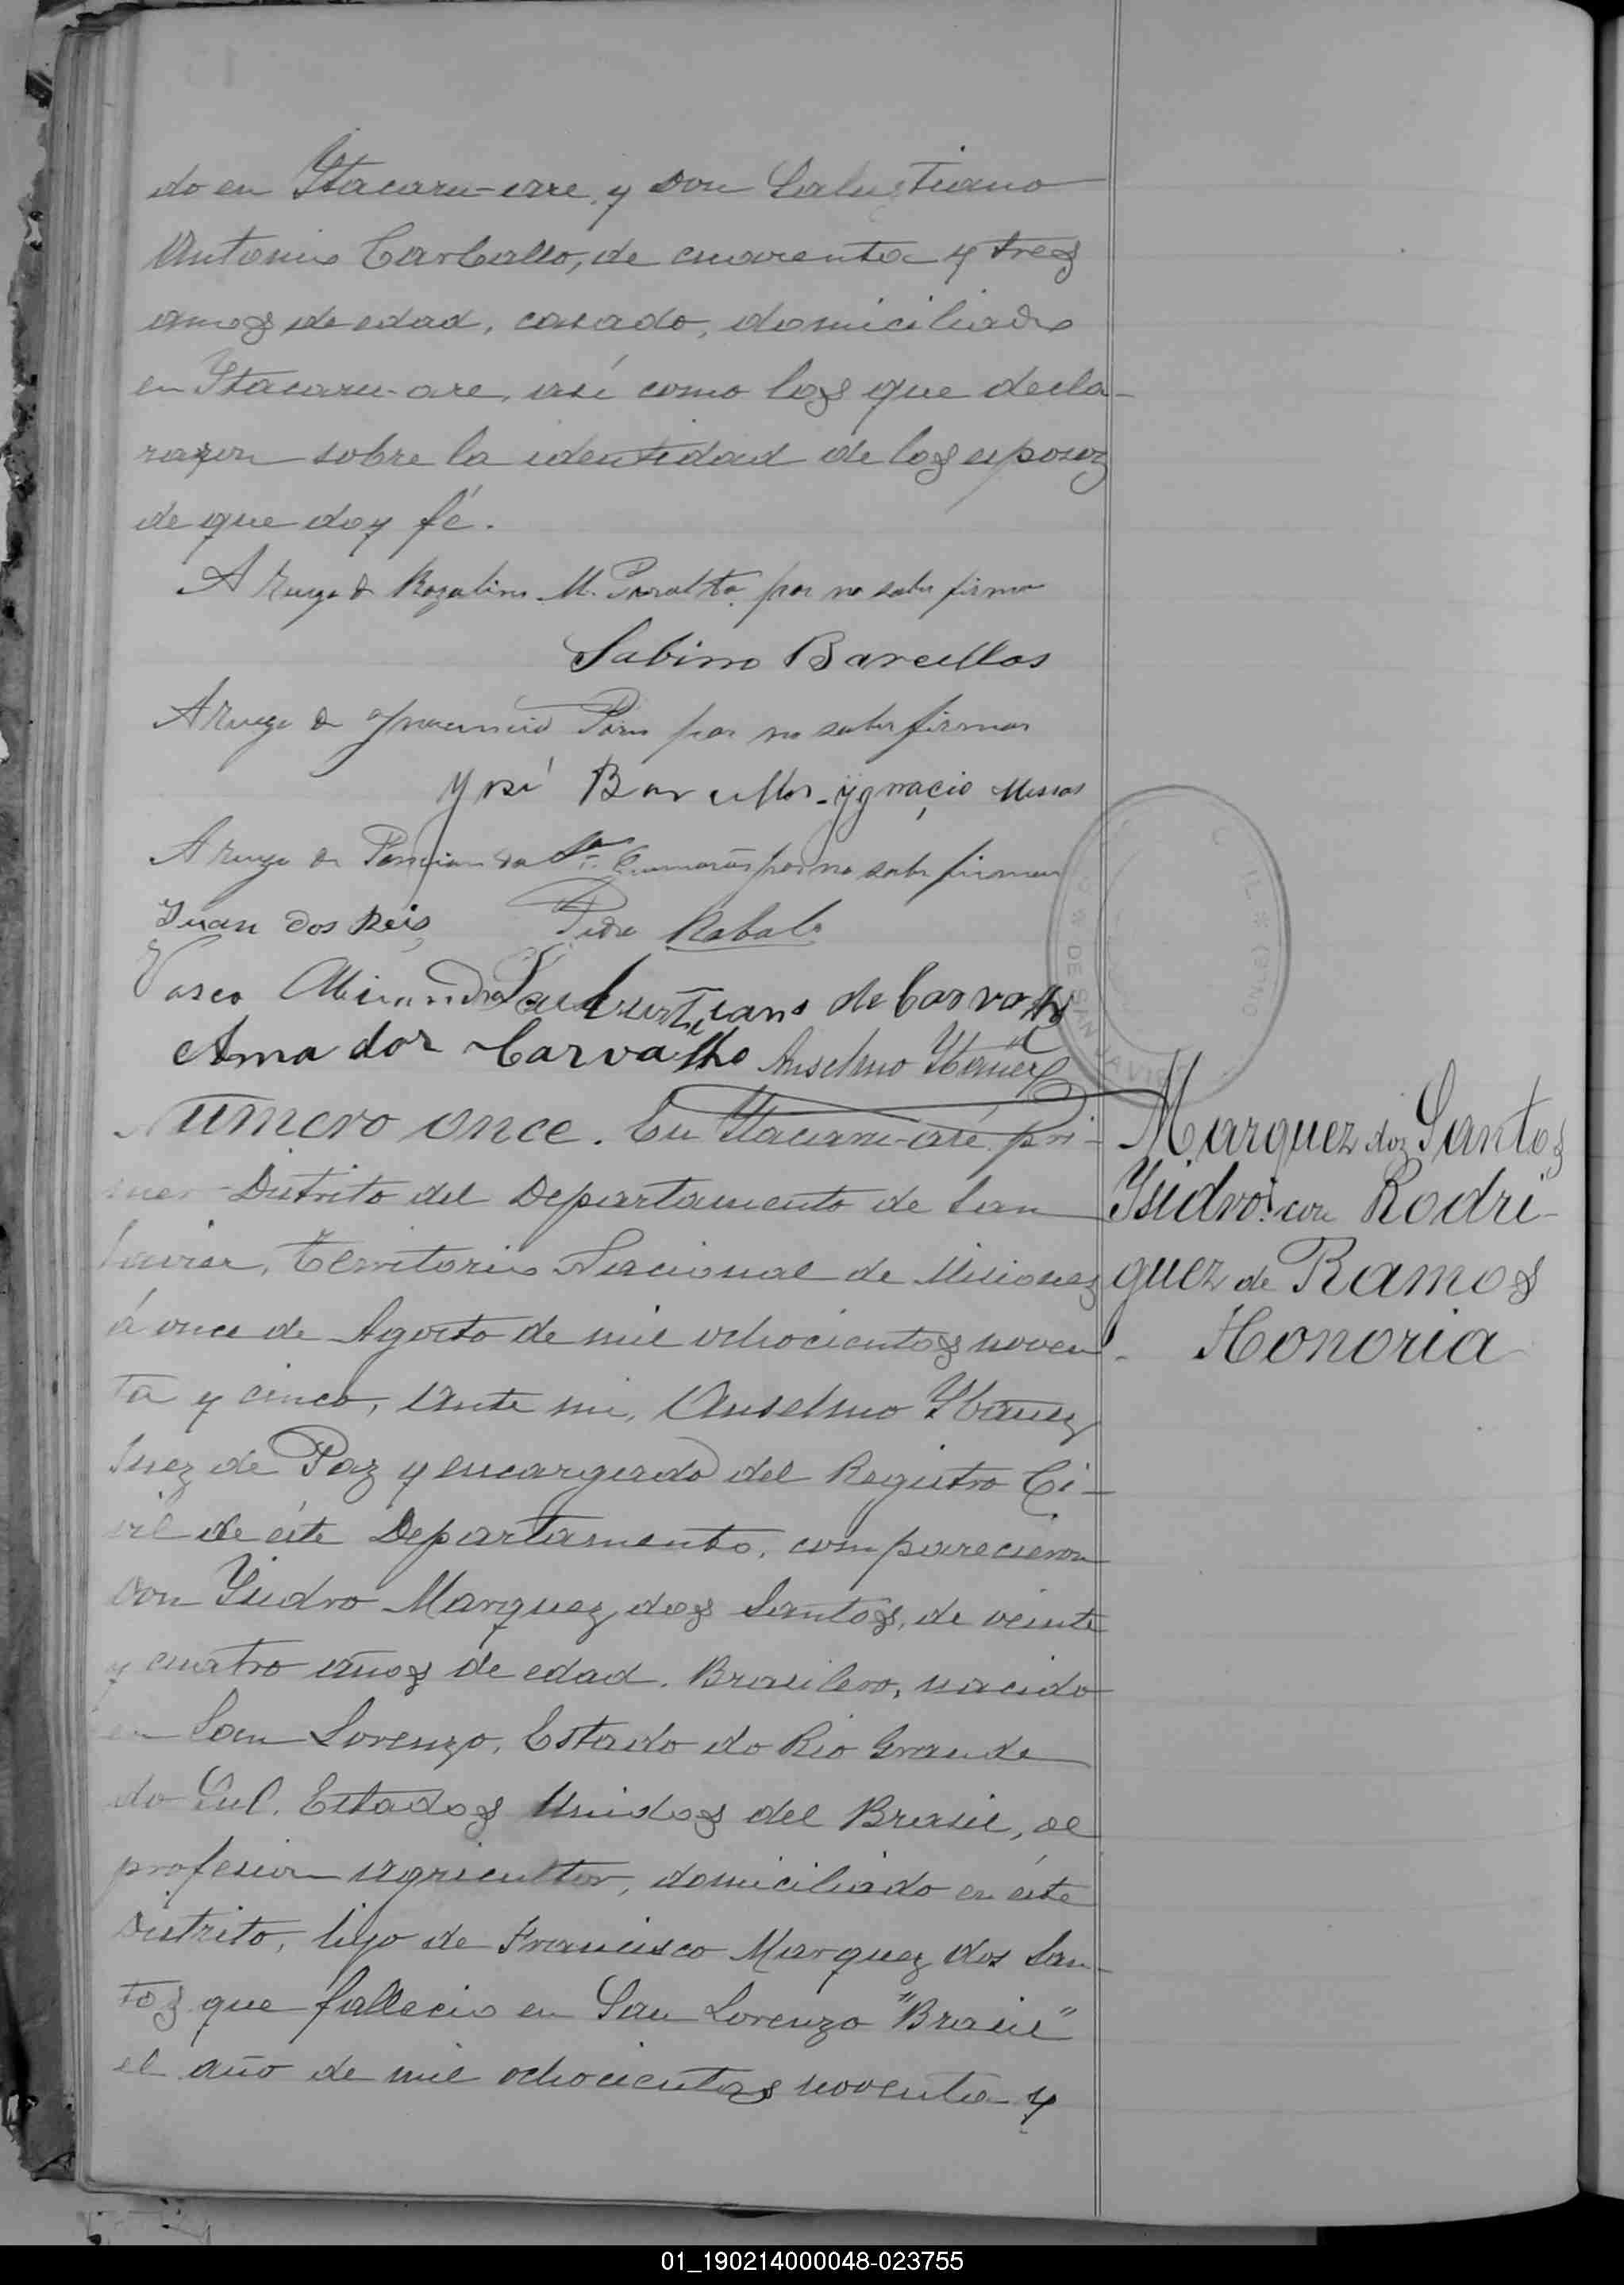 do en Ytacaru-are, y Don Salustiano
Antonio Carballo, de cuarenta y tres
años de edad, casado, domiciliado
en Ytacaru-are, así como los que decla-
raron sobre la identidad de los esposos
de que doy fé.
A ruego de Rozalino M. Peralta por no saber firmar
Sabino Barcellos
A ruego de por no saber firmar
José Barcellos Ygnacio Messas
A ruego de por no saber firmar
Juan dos Reis Pedro Rabalo
Vasco Miranda Salustiano de Carvalho
Amador Carvalho Anselmo Ybañez
Número once. En Ytacaru-aré, pri-
mer Distrito del Departamento de San
Javier, Territorio Nacional de Misiones
á once de Agosto de mil ochocientos noven-
ta y cinco, Ante mi, Anselmo Ybañez
Juez de Paz y encargado del Registro Ci-
vil de éste Departamento, comparecieron
Don Ysidro Marquez dos Santos, de veinte
y cuatro años de edad, Brasilero, nacido
en San Lorenzo, Estado do Rio Grande
do Sul, Estados Unidos del Brasil, de
profesion agricultor, domiciliado en éste
Distrito, hijo de Francisco Marquez dos San-
tos que fallecio en San Lorenzo "Brasil"
el año de mil ochocientos noventa y
Marquez dos Santos
Ysidro con Rodri-
guez de Ramos
Honoria
DE SAN JAVIER
01_190214000048-023755